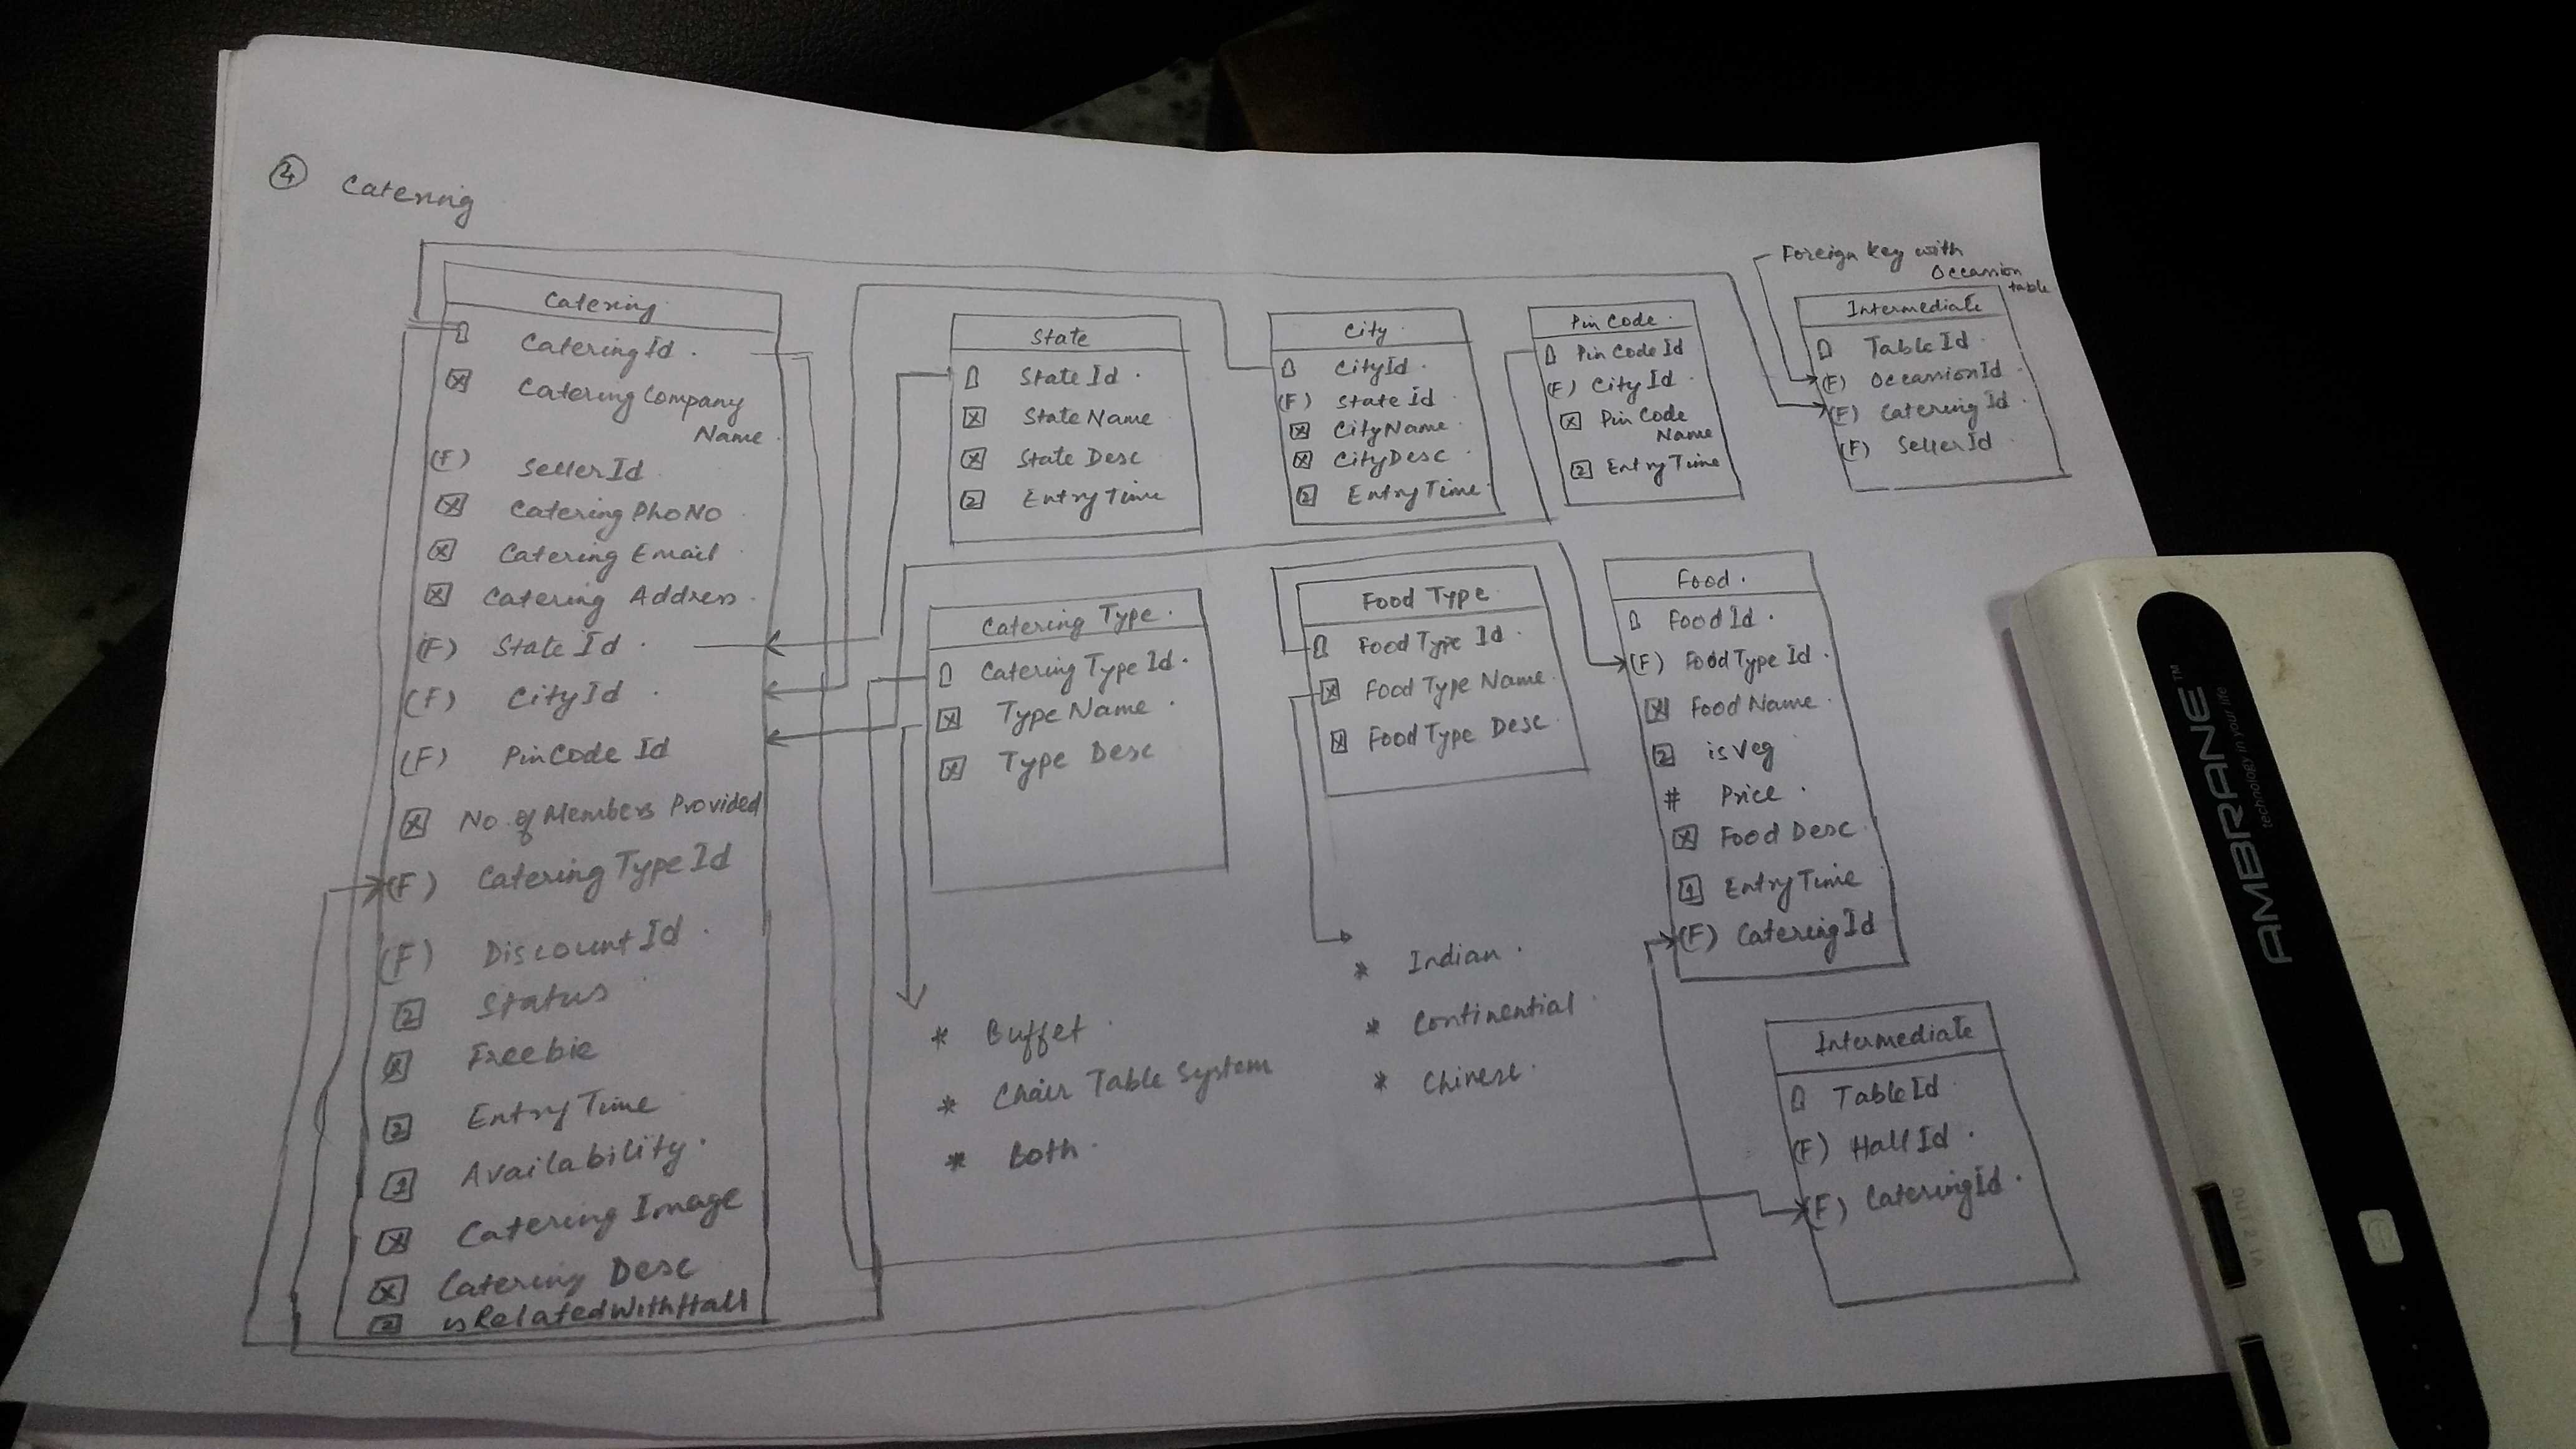 ④ Catering
Catering
CateringId.
[x] Catering Company
Name.
(F) SellerId
[x] Catering PhoNo
[x] Catering Email
[x] Catering Address.
(F) StateId.
(F) CityId.
(F) PinCodeId
[x] No. of Members Provided
(F) CateringTypeId
(F) DiscountId.
[2] Status
[x] Freebie
[2] EntryTime
[1] Availability.
[x] Catering Image
[x] Catering Desc
[2] isRelatedWithHall
State
StateId.
[x] StateName
[x] State Desc
[2] EntryTime
City
CityId.
(F) StateId.
[x] CityName.
[x] CityDesc.
[2] EntryTime.
Pin Code.
Pin Code Id
(F) CityId.
[x] Pin Code
Name
[2] EntryTime
Foreign key with
Occasion
table
Intermediate
TableId.
(F) OccasionId.
(F) CateringId.
(F) SellerId.
Catering Type.
Catering Type Id.
[x] Type Name.
[x] Type Desc
* Buffet.
* Chair Table System
* Both.
Food Type.
Food Type Id.
[x] Food Type Name.
[x] Food Type Desc.
* Indian.
* Continential.
* Chinese.
Food.
Food Id.
(F) Food Type Id.
[x] Food Name.
[2] isVeg
# Price.
[x] Food Desc.
[1] EntryTime
(F) CateringId
Intermediate
TableId.
(F) HallId.
(F) CateringId.
AMBRANE™
technology in your life
OUT 2.1A
OUT 1A